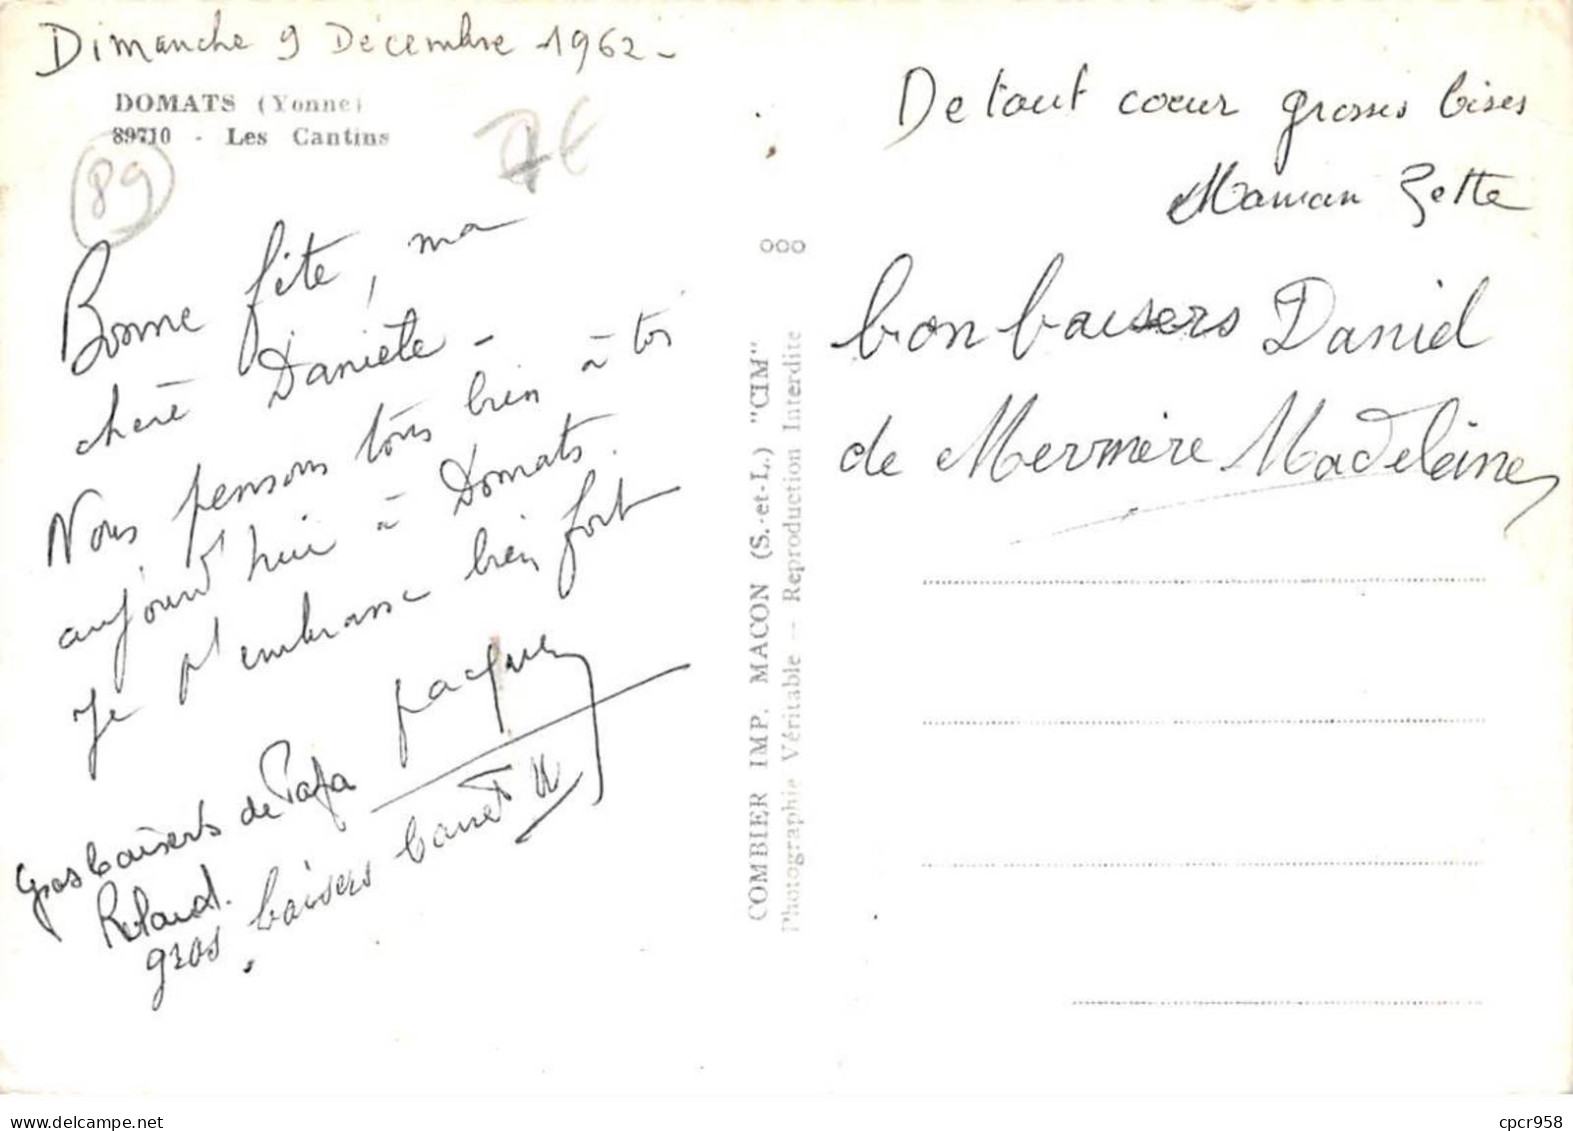 Dimanche 9 Décembre 1962 -
DOMATS (Yonne)
89710 - Les Cantins
89
7€
Bonne fête, ma
chère Danièle -
Nous pensons tous bien à toi
aujourd'hui à Domats.
Je t'embrasse bien fort
Jacques
Gros baisers de Papa
Roland.
gros baisers
COMBIER IMP. MACON (S.-et-L.) "CIM"
Photographie Véritable — Reproduction Interdite
De tout coeur grosses bises
Maman Zette
bon baisers Daniel
de Mermère Madeleine
cpcr958